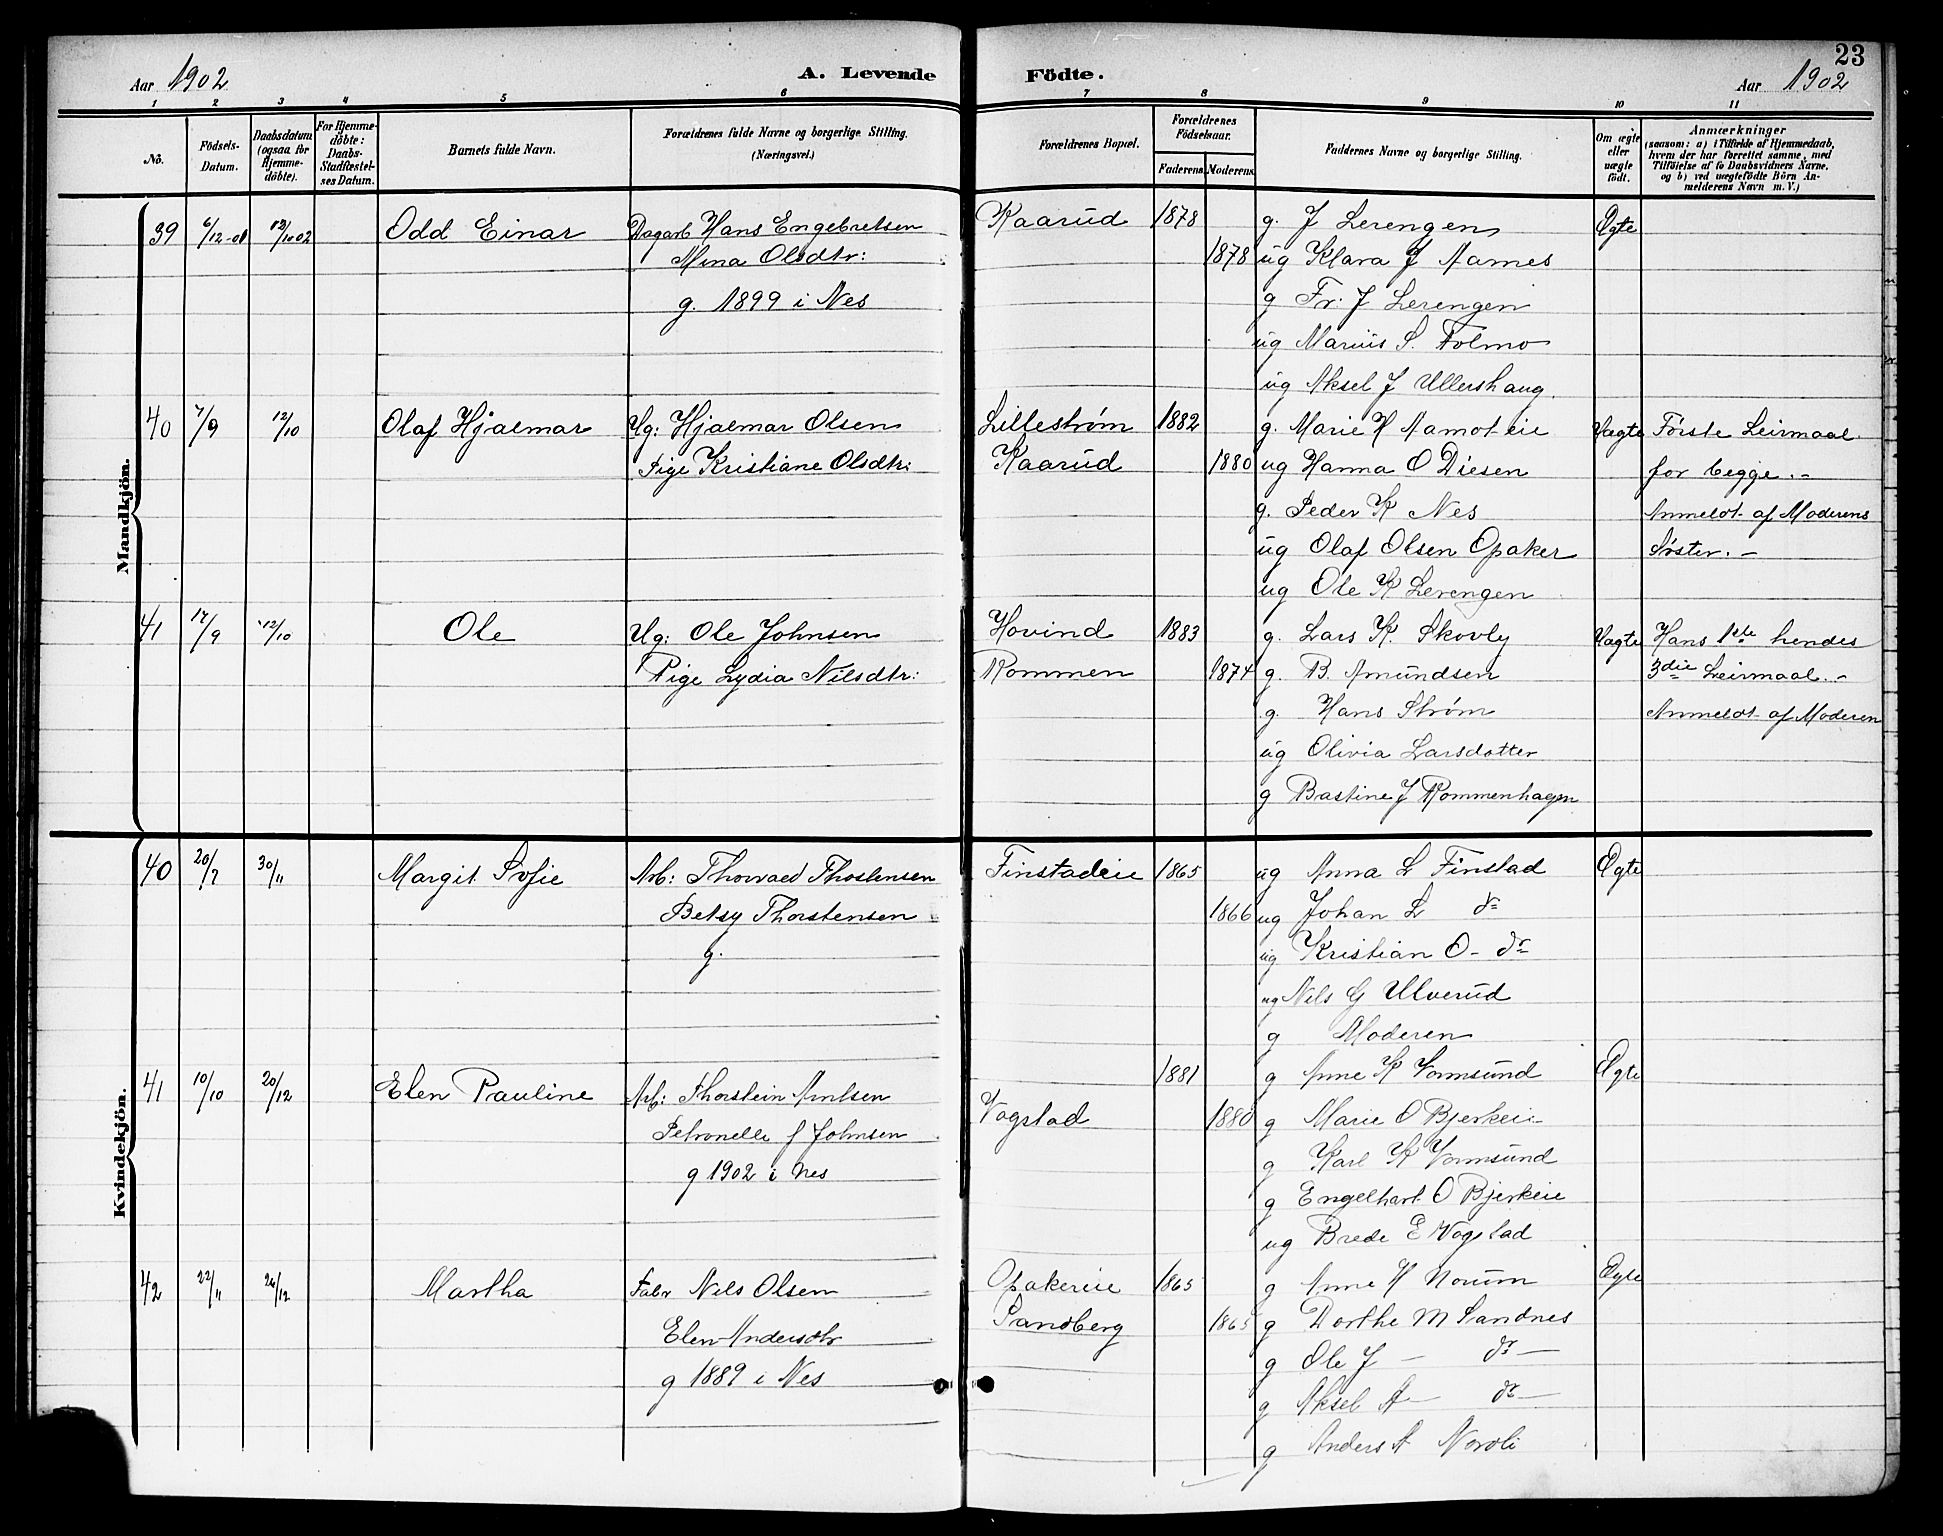 Aar 1902
A. Levende
Födte.
23
Aar 1902
1 2 3 4 5 6 7 8 9 10 11
No.
Födsels-Datum.
Daabsdatum (ogsaa for Hjemme-döbte).
For Hjemme-döbte: Daabs-Stadfæstel-ses Datum.
Barnets fulde Navn.
Forældrenes fulde Navne og borgerlige Stilling. (Næringsvei.)
Forældrenes Bopæl.
Forældrenes Födselsaar.
Faderens. Moderens.
Faddernes Navne og borgerlige Stilling.
Om ægte eller uægte födt.
Anmærkninger
(saasom: a) i Tilfælde af Hjemmedaab, hvem der har forrettet samme, med Tilföielse af to Daabsvidners Navne, og b) ved uægtefödte Börn An-melderens Navn m. V.)
Mandkjön.
39 6/12-01 12/10 02 Odd Einar Dagarb Hans Engebretsen Kaarud 1878 g. J Lerengen Ægte
Mina Olsdtr: 1878 ug Klara J Aarnes
g. 1899 i Nes g Fr: J Lerengen
ug Marius S. Folmo
ug Aksel J Ullershaug.
40 7/9 12/10 Olaf Hjalmar Ug: Hjalmar Olsen Lillestrøm 1882 g. Marie H Aamot eie Uægte Første Leirmaal
Pige Kristiane Olsdtr: Kaarud 1880 ug Hanna O Diesen for begge.-
g. Peder K Nes Anmeldt af Moderens
ug Olaf Olsen Opaker Søster.-
ug Ole K Lerengen
41 17/9 12/10 Ole Ug: Ole Johnsen Hovind 1883 g. Lars K. Skovly Uægte Hans 1ste hendes
Pige Lydia Nilsdtr: Rommen 1874 g. B. Amundsen 3die Leirmaal.-
g. Hans Strøm Anmeldt af Moderen
ug Olivia Larsdatter
g Bastine J Rommenhagen
Kvindekjön.
40 20/7 30/11 Margit Sofie Arb: Thorvald Thostensen Finstadeie 1865 ug Anna L Finstad Ægte
Betsy Thorstensen 1866 ug Johan L do
g. ug Kristian O- do
ug Nils G Ulverud
g Moderen
41 10/10 20/12 Elen Pauline Arb: Thorstein Arntsen 1881 g Anne K Vormsund Ægte
Petronelle f Johnsen Vogstad 1880 g Marie O Bjerkeie
g 1902 i Nes g Karl K Vormsund
g Engelhart O Bjerkeie
ug Brede E Vogstad
42 22/11 26/12 Martha Fabr Nils Olsen Opakereie 1865 g Anne H Noum Ægte
Elen Andersdtr Sandberg 1865 g Dorthe M Sandnes
g 1889 i Nes g Ole J - do -
g Aksel A - do -
g Anders A Nordli